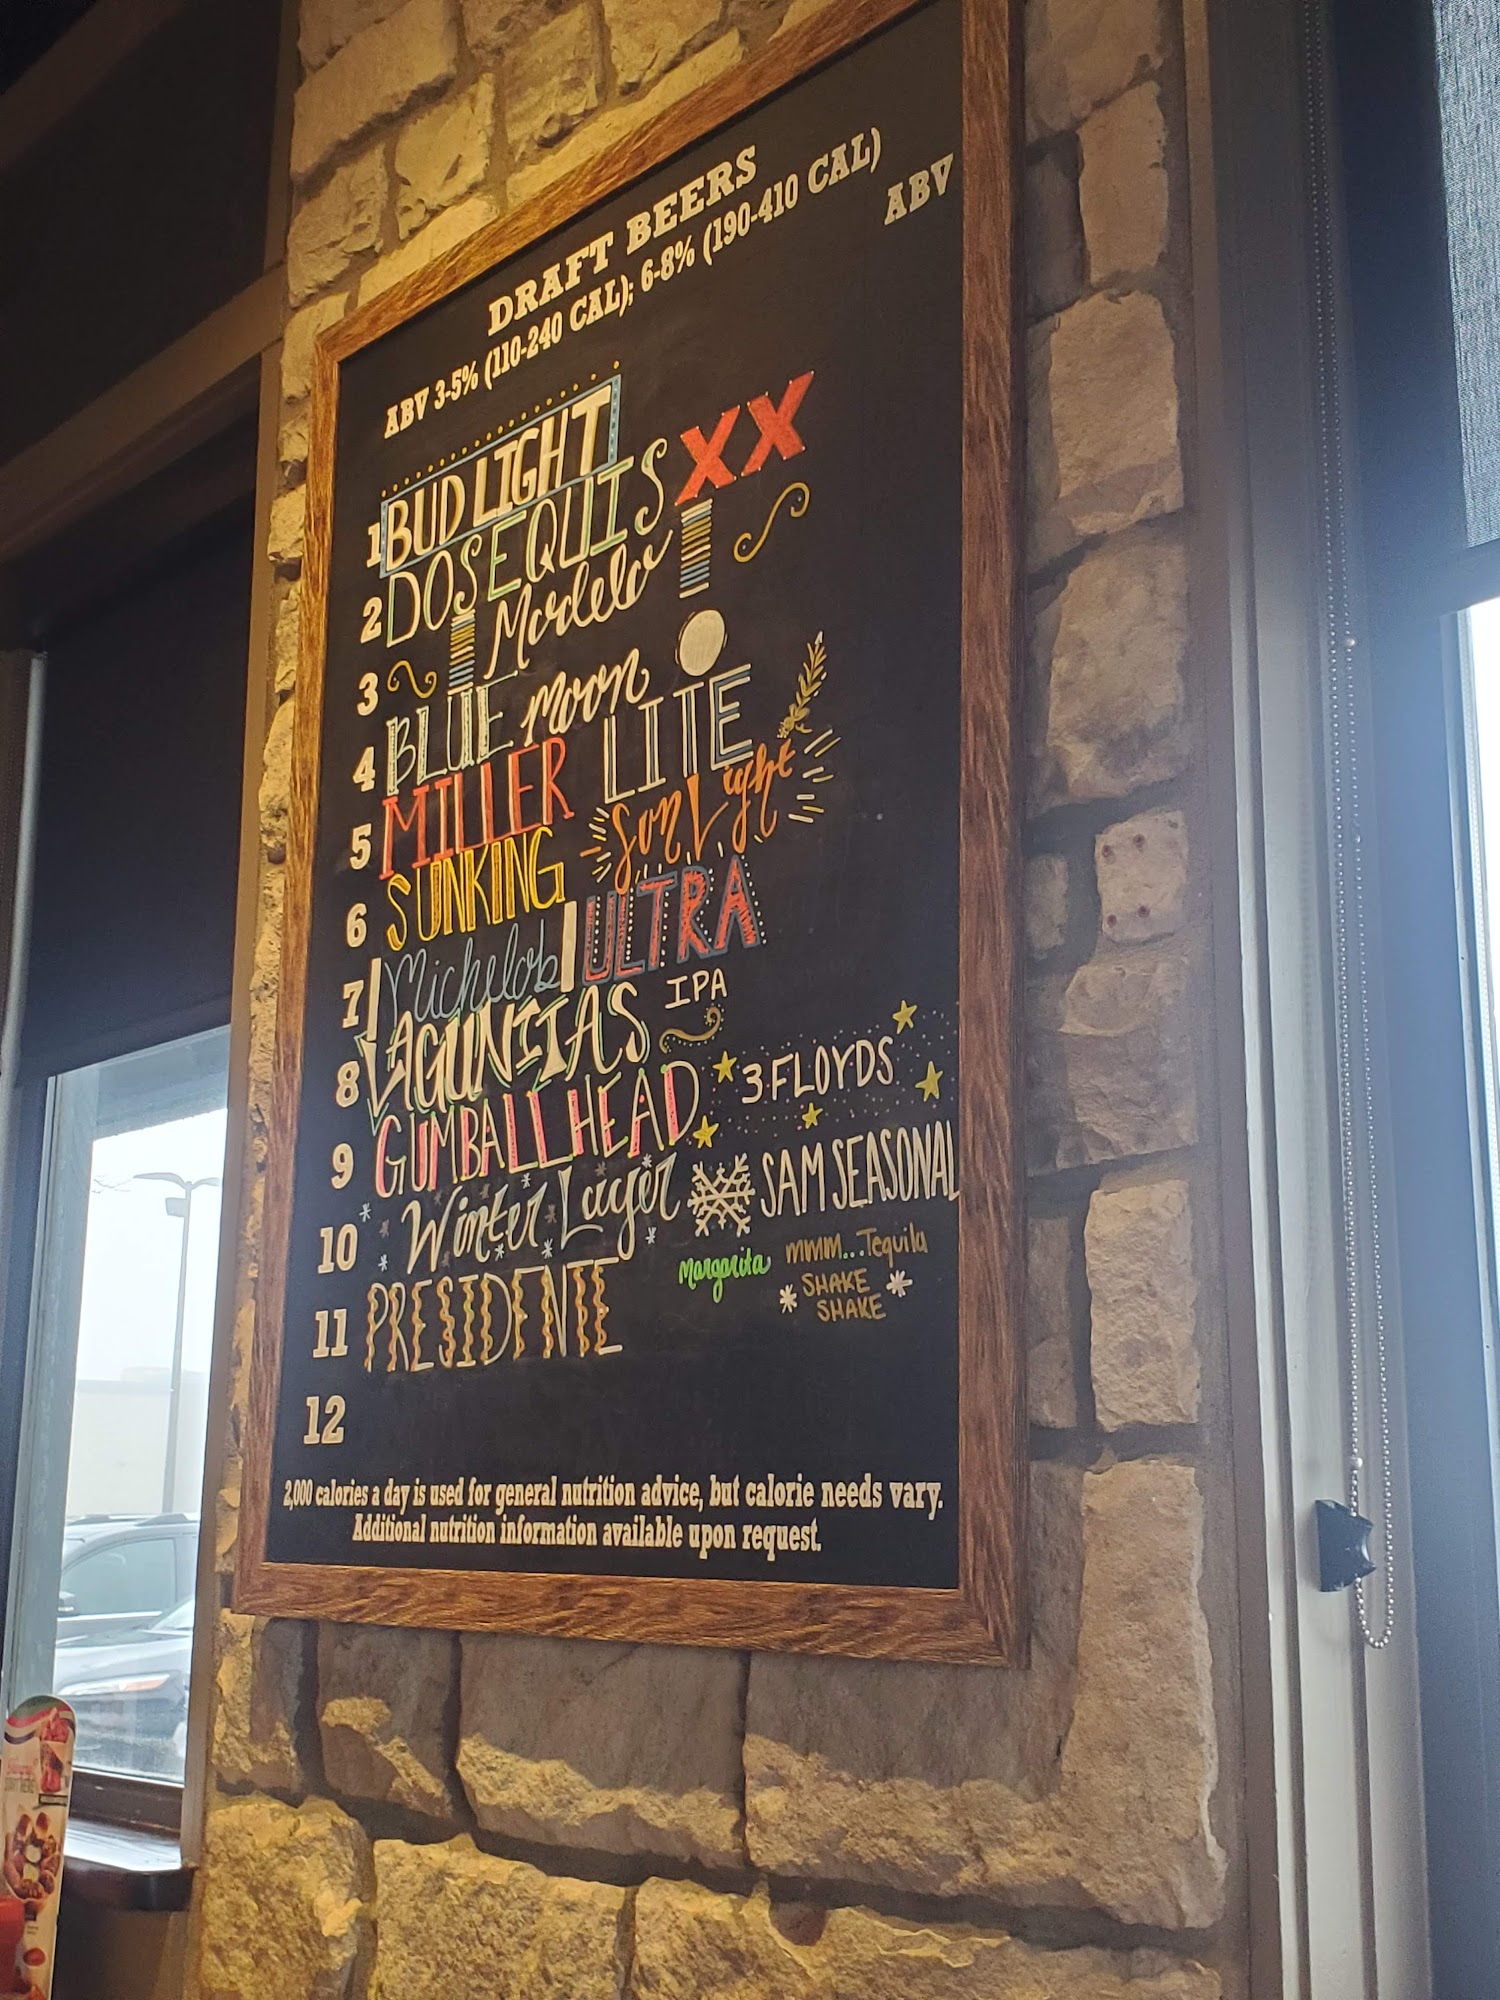 DRAFT BEERS
ABV 3-5% (110-240 CAL); 6-8% (190-410 CAL)
ABV
1 BUD LIGHT
2 DOS EQUIS XX
3 Modelo
4 BLUE moon
5 MILLER LITE
6 SUNKING SunLight
7 Michelob ULTRA
8 LAGUNITAS IPA
9 GUMBALLHEAD 3 FLOYDS
10 Winter Lager SAM SEASONAL
11 PRESIDENTE Margarita mmm...Tequila
SHAKE
SHAKE
12
2,000 calories a day is used for general nutrition advice, but calorie needs vary.
Additional nutrition information available upon request.